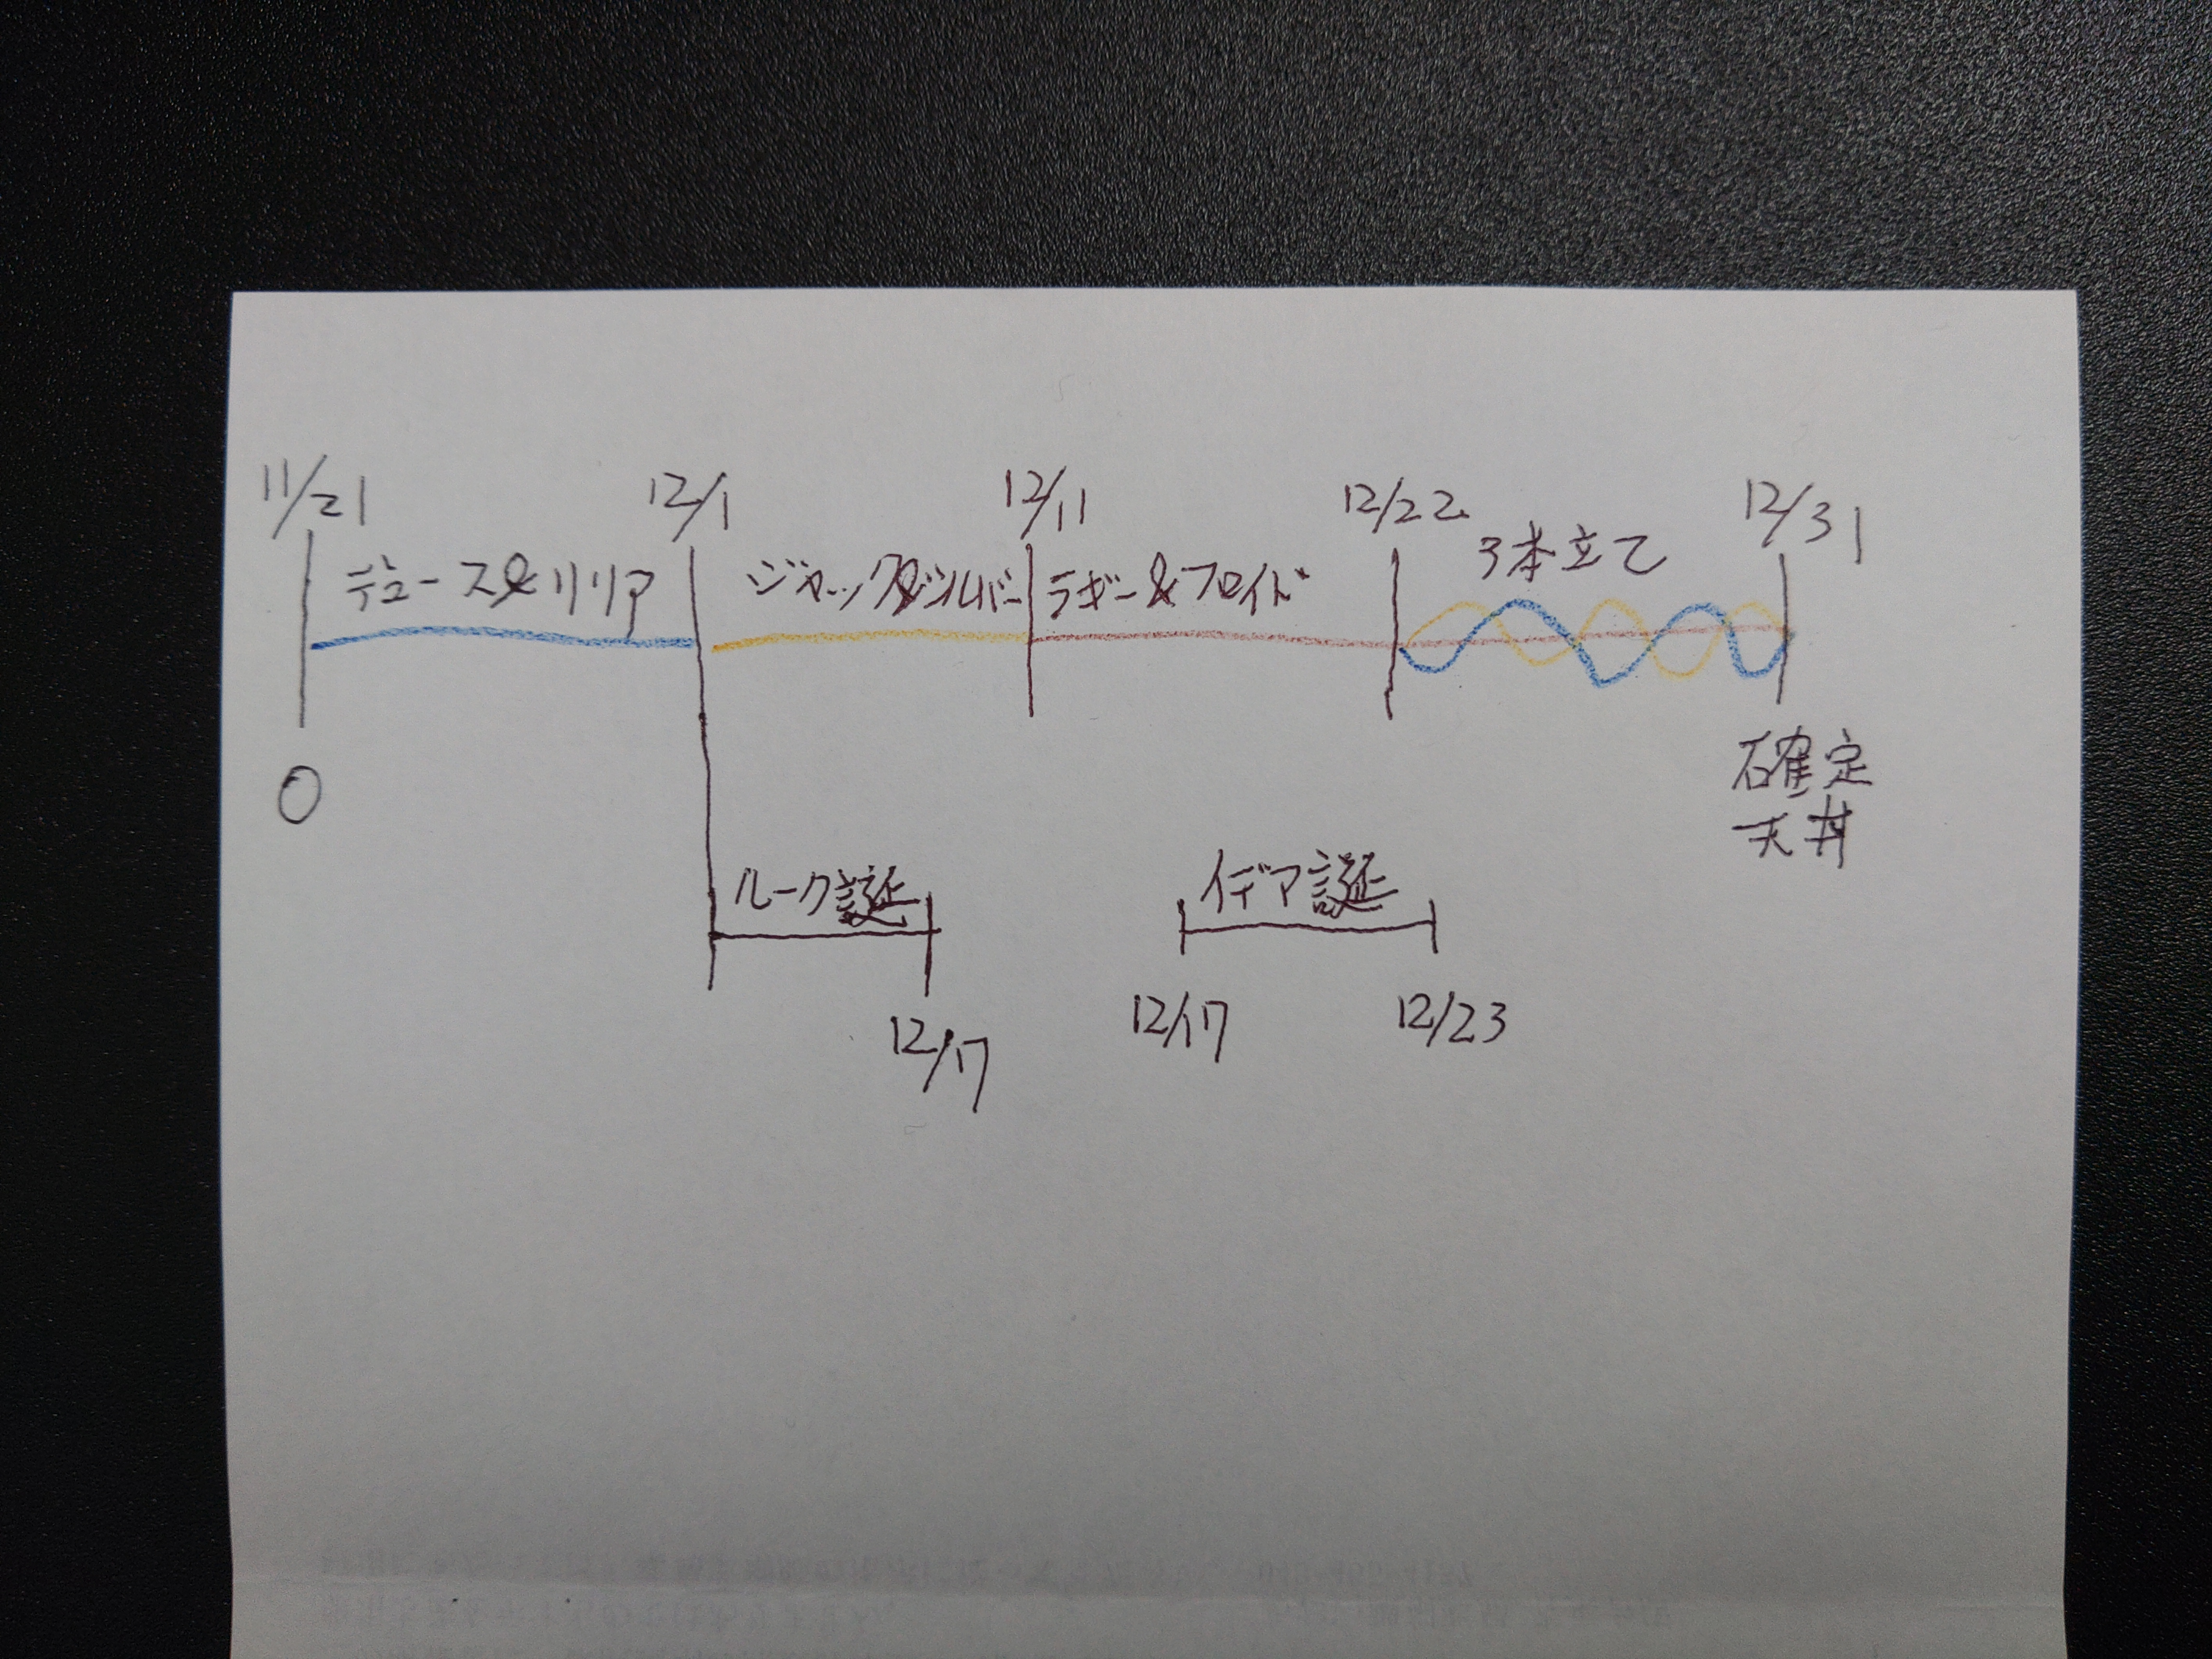 11/21
12/1
12/11
12/22
12/31
デュース&リリア
ジャック&シルバー
ラギー&フロイド
3本立て
0
確定
天井
ルーク誕
イデア誕
12/17
12/17
12/23